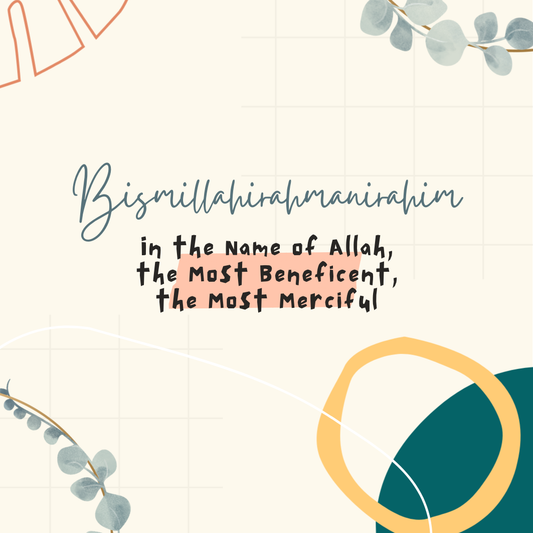 Bismillahirahmanirahim
in the Name of Allah,
the Most Beneficent,
the Most Merciful